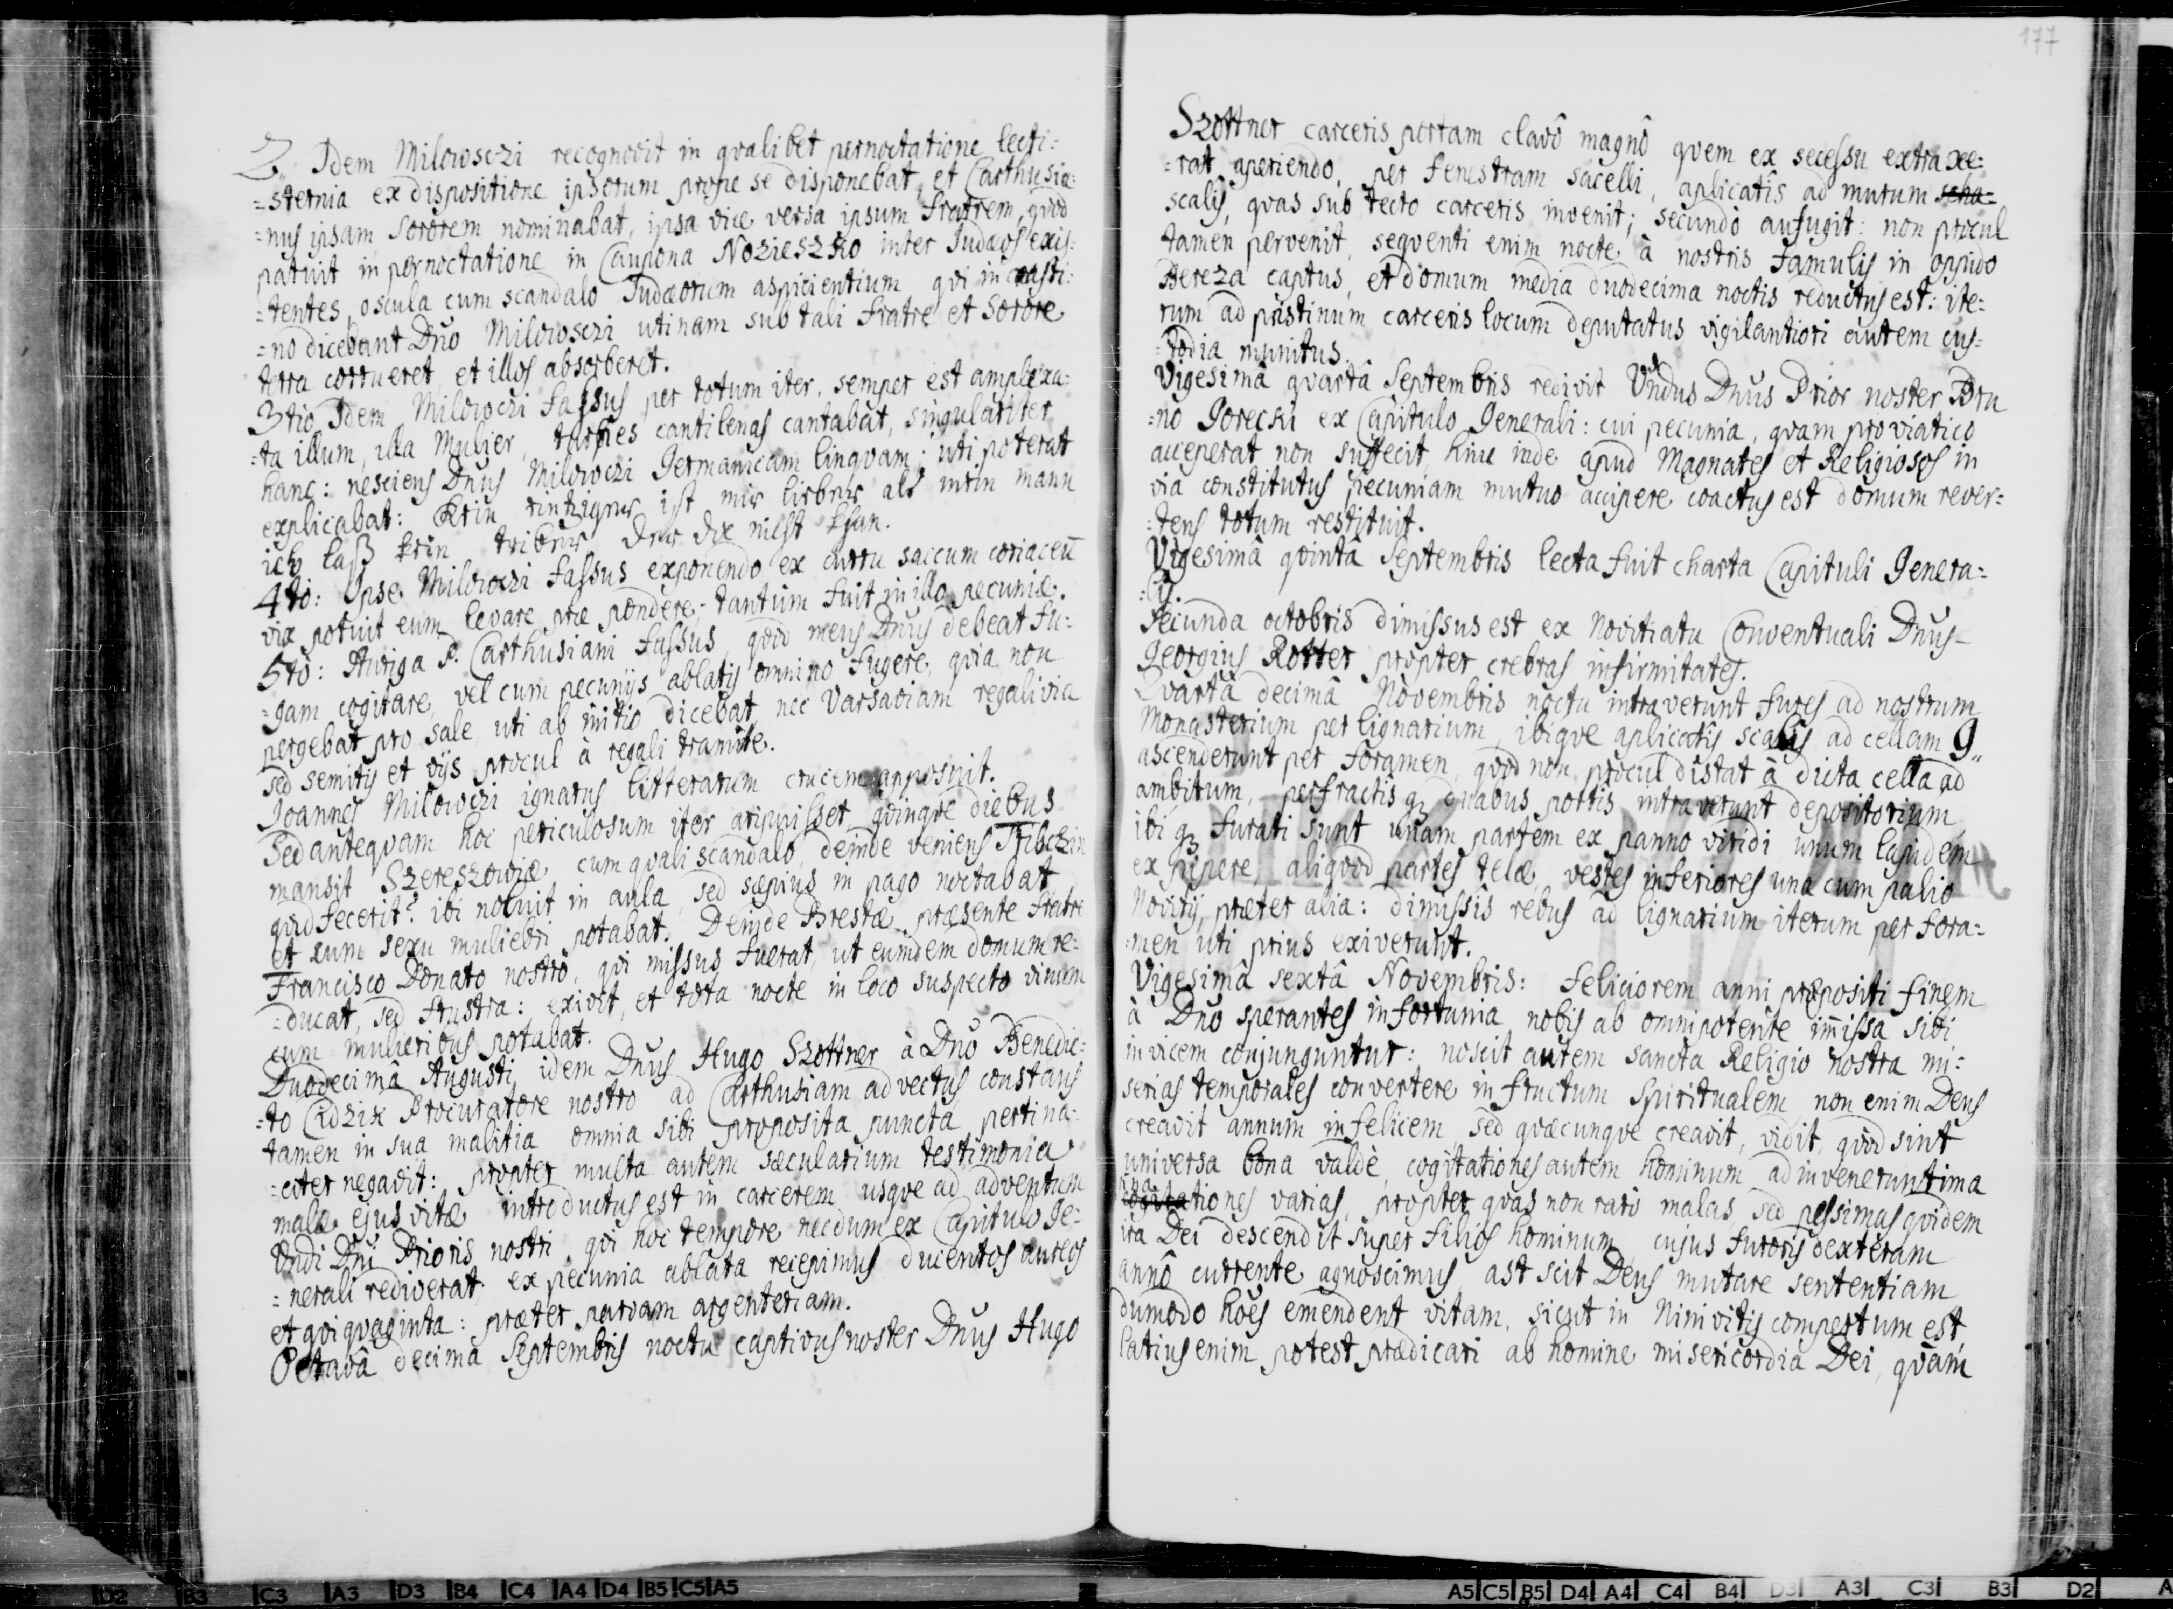 2. Idem Milowsczi recognovit in qvalibet pernoctatione lecti:
=sternia ex dispositione ipsorum prope se disponebat, et Carthusia:
=nus ipsam sororem nominabat, ipsa vice versa ipsum fratrem, qvod
patuit in pernoctatione in Caupona Nozieszko inter Judæos exis:
=tentes, oscula cum scandalo Judæorum aspicientium qvi in crasti:
=no dicebant Dnô Milowsczi utinam sub tali fratre et sorore
terra corrueret et illos absorberet.
3tio Idem Milowczi fassus per totum iter, semper est amplexa:
=ta illum, illa Mulier, turpes cantilenas cantabat, singulariter
hanc: nesciens Dnus Milowczi Germanicam lingvam; uti poterat
explicabat: Kein eintziger ist mir lieber als mein mann
ich laß kein
4tò: Ipse Milowczi fassus exponendo ex curru saccum coriaceū
vix potuit eum levare præ pondere; tantum fuit in illo pecuniæ.
5tò: Auriga P. Carthusiani fassus, qvod meus Dnus debeat fu:
=gam cogitare, vel cum pecunijs ablatis omnino fugere, qvia non
pergebat pro sale, uti ab initio dicebat, nec Varsaviam regali via
sed semitis et vijs procul à regali tramite.
Joannes Milowczi ignarus litterarum crucem apposuit.
Sed anteqvam hoc periculosum iter aripuisset qvinqve diebus
mansit Szereszowiæ cum qvali scandalo, deinde veniens
qvid fecerit? ibi noluit in aula, sed sæpius in pago noctabat
et cum sexu muliebri potabat. Deinde Brestæ præsente fratre
Francisco Donato nostrô, qvi missus fuerat, ut eumdem domum re:
=ducat, sed frustra: exivit, et tota nocte in loco suspecto vinum
cum mulieribus potabat.
Duodecimâ Augusti idem Dnus Hugo Szottner à Dnô Benedic:
=to Cidzik Procuratore nostro ad Carthusiam advectus constans
tamen in sua malitia omnia sibi proposita puncta pertina:
=citer negavit: propter multa autem sæcularium testimonia
malæ ejus vitæ introductus est in carcerem usqve ad adventum
Vndi Dni Prioris nostri, qvi hoc tempore necdum ex Capitulo Ge:
=nerali rediverat, ex pecunia ablata recepimus ducentos aureos
et qvi qvaginta: præter parvam argenteriam.
Octavâ decima Septembris noctu captivus noster Dnus Hugo
177
Szottner carceris portam clavô magnô qvem ex secessu extraxe:
=rat aperiendo, per fenestram sacelli, aplicatis ad murum scha=
scalis, qvas sub tecto carceris invenit; secundô aufugit: non procul
tamen pervenit, seqventi enim nocte â nostris famulis in oppido
Bereza captus, et domum media duodecima noctis reductus est: ite:
rum ad pristinum carceris locum deputatus vigilantiori autem cus:
=todia munitus.
Vigesimâ qvartâ Septembris redivit Vndus Dnus Prior noster Bru
=no Gorecki ex Capitulo Generali: cui pecunia, qvam pro viatico
acceperat non suffecit, hinc inde apud Magnates et Religiosos in
via constitutus pecuniam mutuo accipere coactus est domum rever:
=tens totum restituit.
Vigesimâ qvintâ Septembris lecta fuit charta Capituli Genera:
=lis.
Secunda octobris dimissus est ex Novitiatu Conventuali Dnus
Georgius Rotter propter crebras infirmitates.
Qvartâ decimâ Novembris noctu intraverunt fures ad nostrum
Monasterium per lignarium, ibiqve aplicatis scalis ad cellam 9
ascenderunt per foramen, qvod non procul distat â dicta cella ad
ambitum, perfractis qz duabus portis intraverunt depositorium
ibi qz furati sunt unam partem ex panno viridi unum lapidem
ex pipere, aliqvod partes telæ, vestes inferiores una cum palio
Novitij, præter alia: dimissis rebus ad lignarium iterum per fora:
=men uti prius exiverunt.
Vigesimâ sextâ Novembris: feliciorem anni præpositi finem
à Dnô sperantes infortunia nobis ab omnipotente im̄issa sibi
invicem conjunguntur: noscit autem sancta Religio nostra mi:
serias temporales convertere in fructum Spiritualem, non enim Deus
creavit annum infelicem, sed qvæcunqve creavit, vidit, qvod sint
universa bona valdè, cogitationes autem hominum adinvenerunt ima
gina
cogitationes varias, propter qvas non raro malas sed pessimas qvidem
ira Dei descendit super filios hominum, cujus furoris dexteram
annô currente agnoscimus, ast scit Deus mutare sententiam
dumodo hoēs emendent vitam, sicut in Ninivitis compertum est
latius enim potest prædicari ab homine misericordia Dei, qvàm